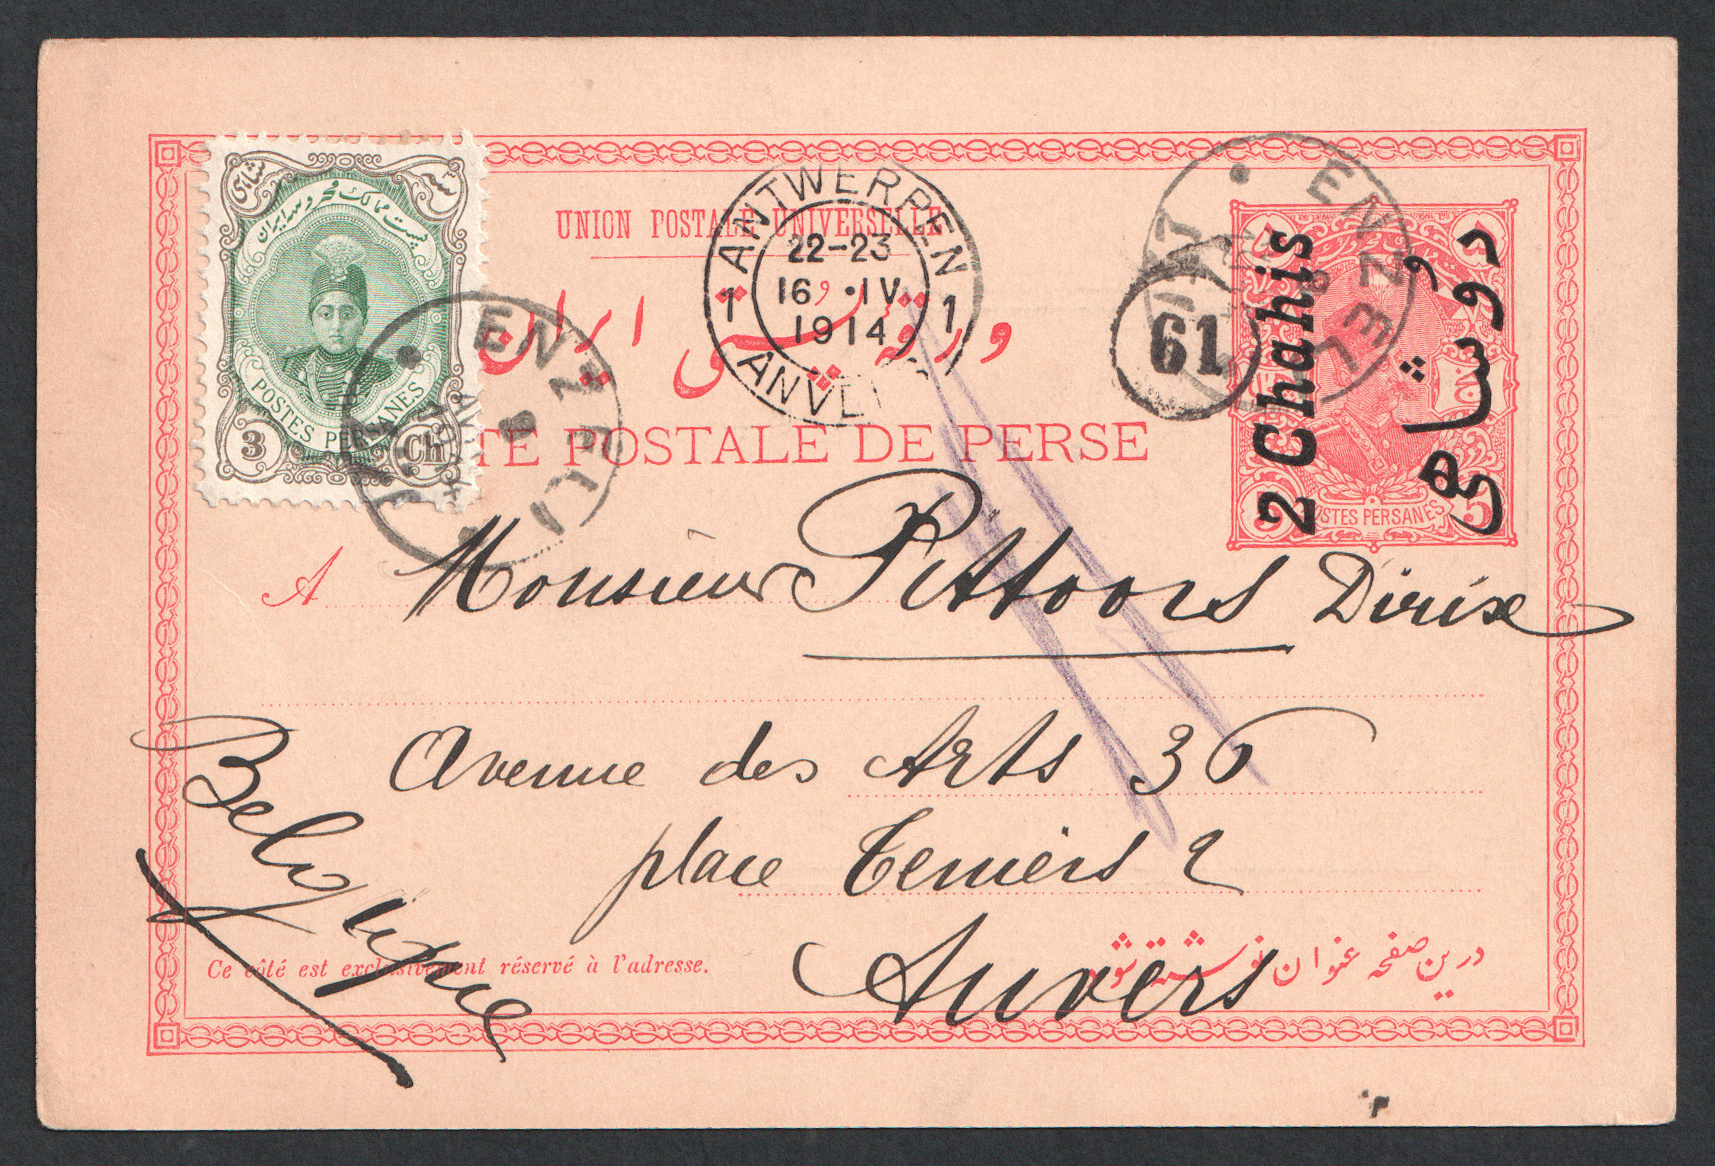 UNION POSTALE UNIVERSELLE
ورقه پستی ایران
TE POSTALE DE PERSE
سه شاهی
پست ممالک محروسه ایران
POSTES PERSANES
3 Ch
ENZELI
ANTWERPEN
1 1
22-23
16 · IV
1914
ANVE
ENZELI
61
2 Chahis
دو شاهی
POSTES PERSANES
5
A Monsieur Pittoors Dirix
Avenue des Arts 36
place Teniers 2
Anvers
Belgique
Ce côté est exclusivement réservé à l'adresse.
درین صفحه عنوان نوشته شود